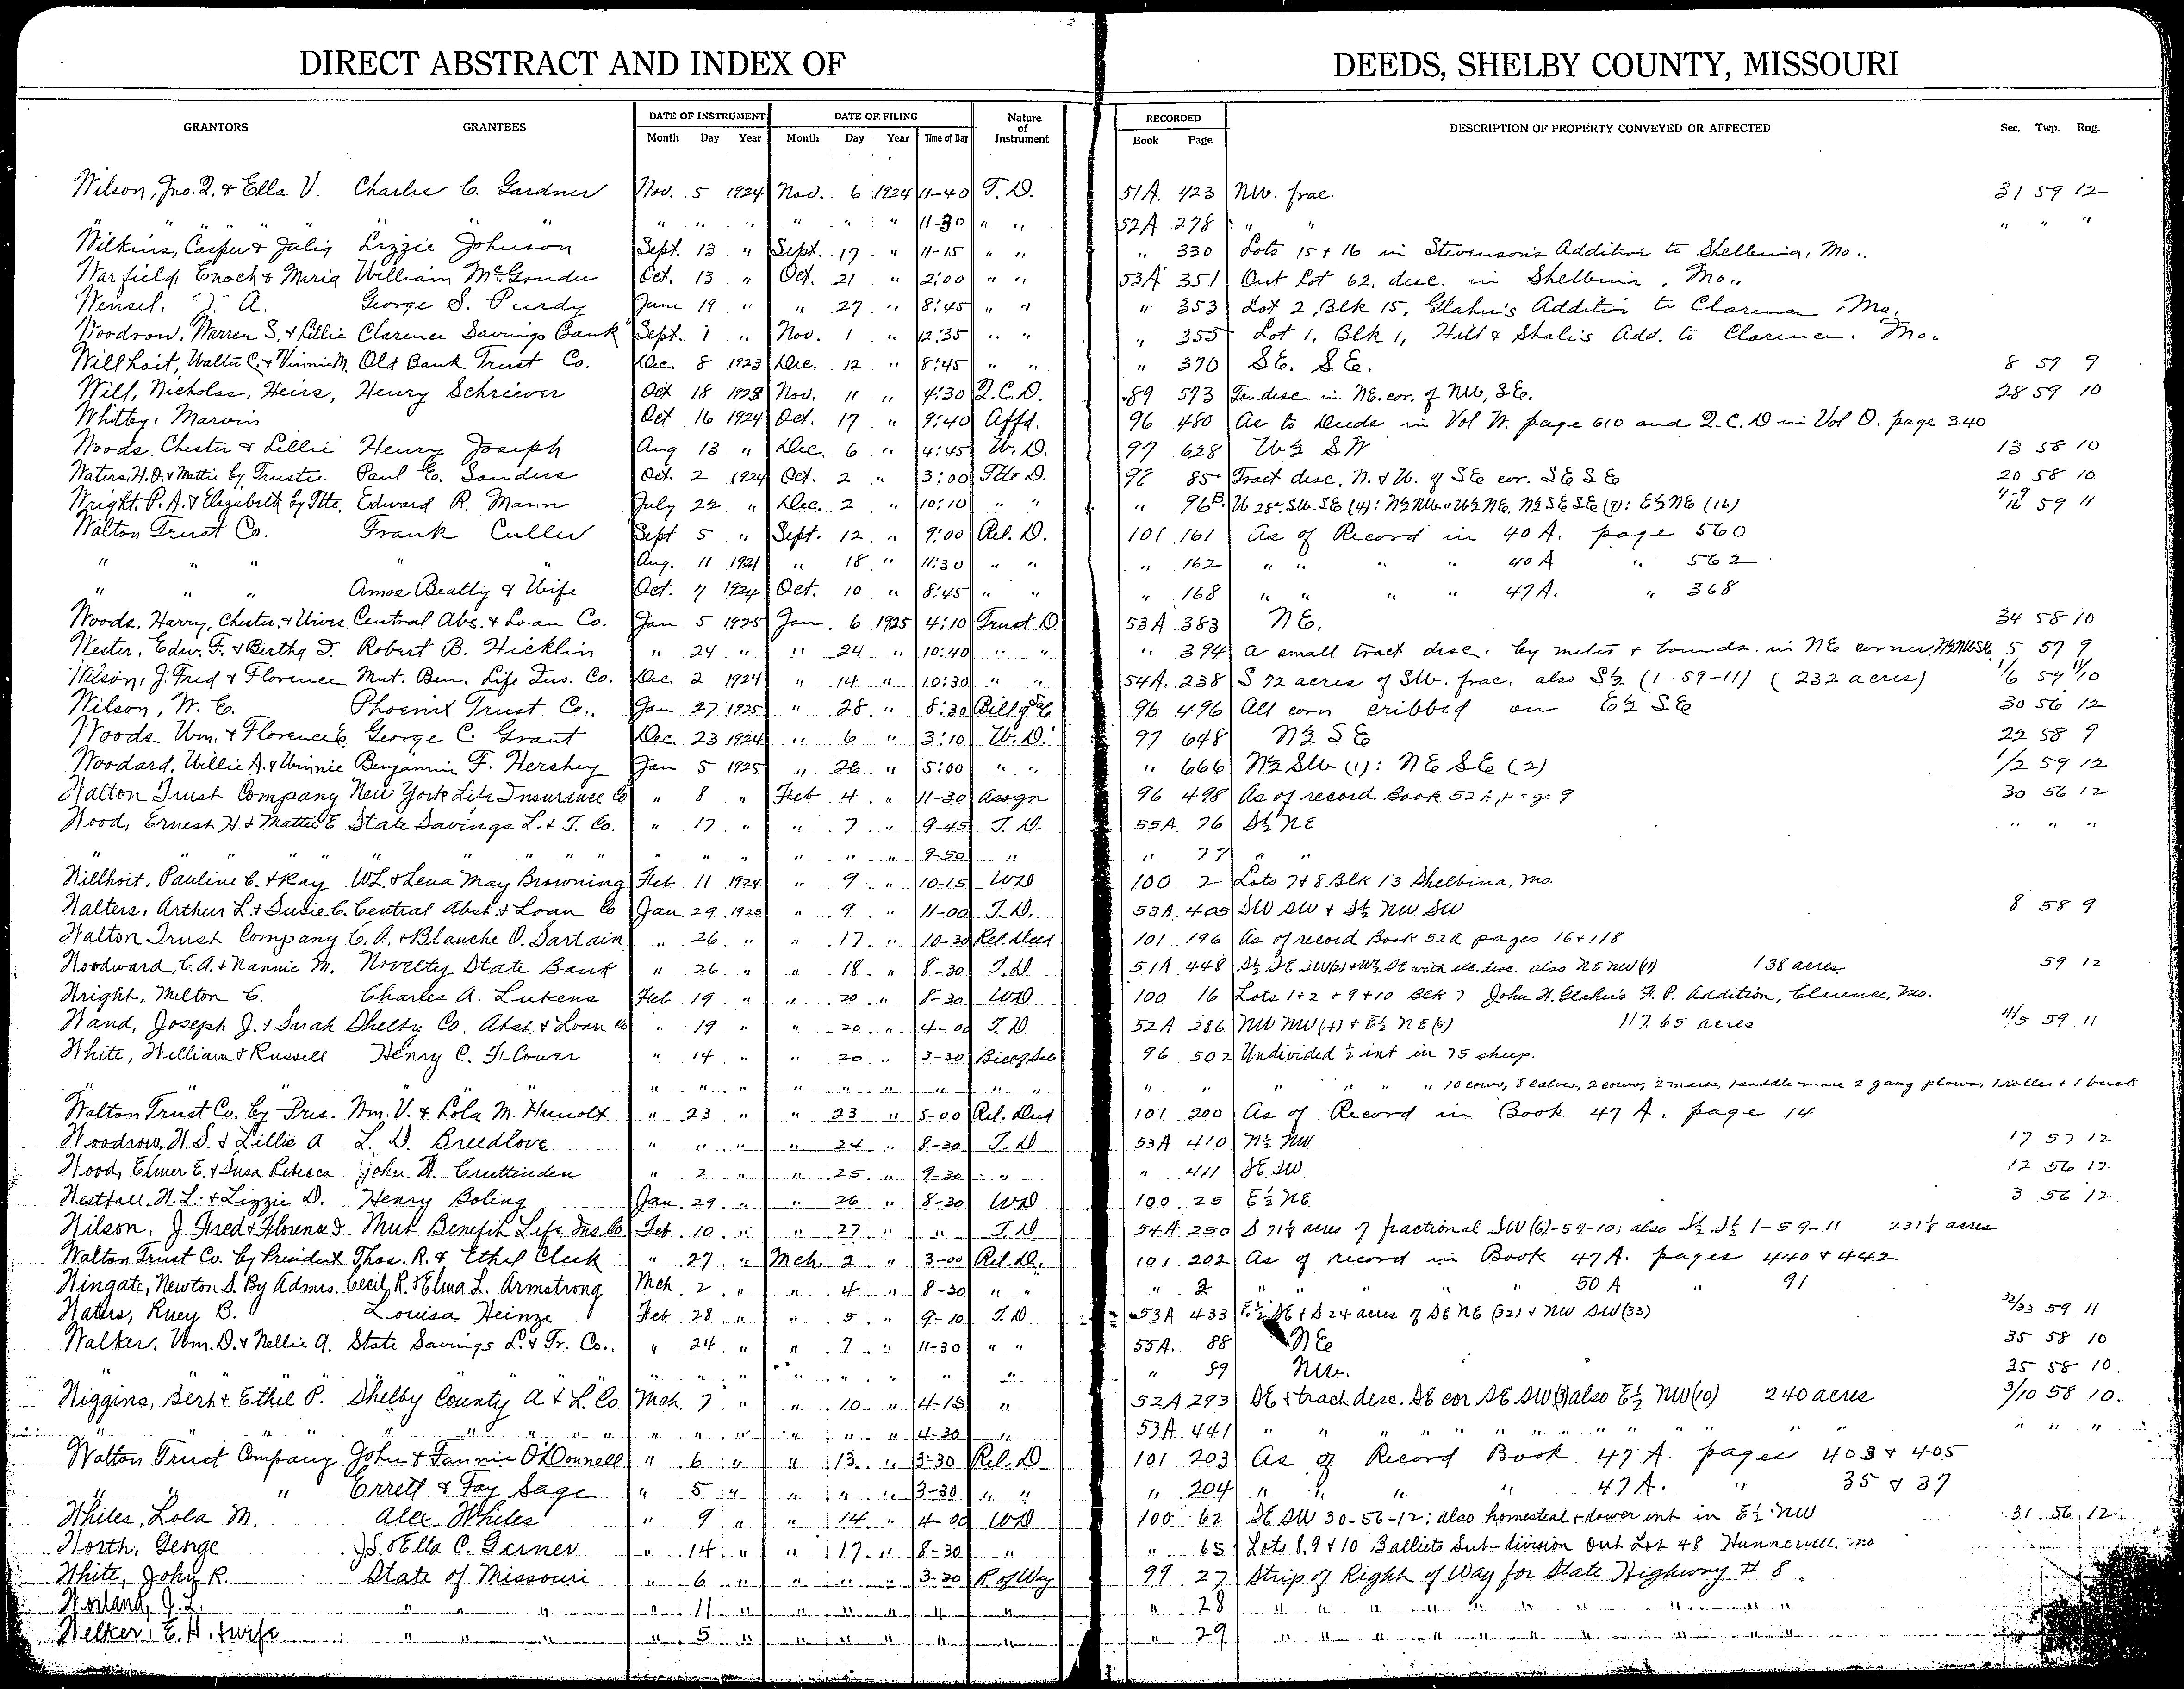 DIRECT ABSTRACT AND INDEX OF DEEDS, SHELBY COUNTY, MISSOURI
GRANTORS GRANTEES DATE OF INSTRUMENT DATE OF FILING Nature of Instrument RECORDED DESCRIPTION OF PROPERTY CONVEYED OR AFFECTED Sec. Twp. Rng.
Month Day Year Month Day Year Time of Day Book Page
Wilson, Jno. Q. & Ella V. Charlie C. Gardner Nov. 5 1924 Nov. 6 1924 11-40 T. D. 51A. 423 NW. frac. 31 59 12
" " " " " " " " " " " " 11-30 " " 52A 278 " " " " "
Wilkins, Casper & Julia Lizzie Johnson Sept. 13 " Sept. 17 " 11-15 " " " 330 Lots 15 & 16 in Stevenson's Addition to Shelbina, Mo..
Warfield, Enoch & Maria William McGonder Oct. 13 " Oct. 21 " 2:00 " " 53A 351 Out Lot 62, desc. in Shelbina, Mo..
Wensel. T. A. George S. Purdy June 19 " " 27 " 8:45 " " " 353 Lot 2, Blk 15, Glahn's Addition to Clarence, Mo.
Woodrow, Warren S. & Lillie Clarence Savings Bank Sept. 1 " Nov. 1 " 12:35 " " " 355 Lot 1, Blk 1, Hill & Shale's Add. to Clarence. Mo.
Willhoit, Walter C. & Vinnie M. Old Bank Trust Co. Dec. 8 1923 Dec. 12 " 8:45 " " " 370 SE. SE. 8 57 9
Will, Nicholas, Heirs, Henry Schriever Oct 18 1923 Nov. 11 " 4:30 Q.C.D. 89 573 Tr. desc in NE. cor. of NW, SE. 28 59 10
Whitby, Marvin Oct 16 1924 Oct. 17 " 9:40 Affd. 96 480 As to Deeds in Vol W. page 610 and Q.C.D in Vol O. page 340
Woods, Chester & Lillie Henry Joseph Aug 13 " Dec. 6 " 4:45 W.D. 97 628 W½ SW 13 58 10
Waters, H.D. & Mattie by Trustee Paul E. Sanders Oct. 2 1924 Oct. 2 " 3:00 Ttte D. 98 85 Tract desc, N. & W. of SE cor. SE SE 20 58 10
Wright, P. A. & Elizabeth by Ttte, Edward R. Mann July 22 " Dec. 2 " 10:10 " " " 96 W 28a. SW. SE (4): N½ NW & W½ NE, N½ SE SE (9): E½ NE (16) 4-9 16 59 11
Walton Trust Co. Frank Culler Sept 5 " Sept. 12 " 9:00 Rel. D. 101 161 As of Record in 40 A. page 560
" " " " Aug. 11 1921 " 18 " 11:30 " " " 162 " " " " 40 A " 562
" " " Amos Beatty & Wife Oct. 7 1924 Oct. 10 " 8:45 " " " 168 " " " " 47A. " 368
Woods, Harry, Chester, & Wives Central Abs. & Loan Co. Jan. 5 1925 Jan. 6 1925 4:10 Trust D. 53A 383 NE. 34 58 10
Wester, Edw. F. & Bertha D. Robert B. Hicklin " 24 " " 24 " 10:40 " " " 394 A small tract desc. by metes & bounds. in NE corner 5 57 9
Wilson, J. Fred & Florence Mut. Ben. Life Ins. Co. Dec. 2 1924 " 14 " 10:30 " " 54A. 238 S 72 acres of SW. frac. also S½ (1-59-11) (232 acres) 1/6 59 11/10
Wilson, W. E. Phoenix Trust Co.. Jan 27 1925 " 28 " 8:30 Bill of Sale 96 496 All corn cribbed on E½ SE 30 56 12
Woods, Wm. & Florence E. George C. Grant Dec. 23 1924 " 6 " 3:10 W.D. 97 648 N½ SE 22 58 9
Woodard, Willie A. & Winnie Benjamin F. Hershey Jan 5 1925 " 26 " 5:00 " " " 666 N½ SW (1): NE SE (2) 1/2 59 12
Walton Trust Company New York Life Insurance Co " 8 " Feb 4 " 11-30 Assgn 96 498 As of record Book 52A page 9 30 56 12
Wood, Ernest H. & Mattie E State Savings L. & T. Co. " 17 " " 7 " 9-45 T.D. 55A 76 S½ NE " " "
" " " " " " " " " " " " " 9-50 " " 77 " "
Willhoit, Pauline C. & Ray W.L. & Lena May Browning Feb 11 1924 " 9 " 10-15 WD 100 2 Lots 7 & 8 Blk 13 Shelbina, Mo.
Walters, Arthur L. & Susie C. Central Abst. & Loan Co Jan. 29 1925 " 9 " 11-00 T.D. 53A 405 SW SW & S½ NW SW 8 58 9
Walton Trust Company C. A. & Blanche O. Sartain " 26 " " 17 " 10-30 Rel. Deed 101 196 As of record Book 52A pages 16 & 118
Woodward, C. A. & Nannie M. Novelty State Bank " 26 " " 18 " 8-30 T.D 51A 448 also NE NW (11) 138 acres 59 12
Wright, Milton C. Charles A. Lukens Feb 19 " " 20 " 8-30 WD 100 16 Lots 1+2 + 9+10 Blk 7 John W. Glahn's F. P. Addition, Clarence, Mo.
Wand, Joseph J. & Sarah Shelby Co. Abst. & Loan Co " 19 " " 20 " 4-00 T.D 52A 286 NW NW (4) & E½ NE (5) 117.65 acres 4/5 59 11
White, William & Russell Henry C. Flower " 14 " " 20 " 3-30 Bill of Sale 96 502 Undivided ½ int in 75 sheep.
" " " " " " " " " " " " " " " " 10 cows, 8 calves, 2 cows, 2 mares, 1 saddle mare 2 gang plows, 1 roller & 1 buck
Walton Trust Co. by Pres. Wm. V. & Lola M. Hunolt " 23 " " 23 " 5-00 Rel. Deed 101 200 As of Record in Book 47 A. page 14
Woodrow, W. S. & Lillie A L. D. Breedlove " " " " 24 " 8-30 T.D 53A 410 N½ NW 17 57 12
Wood, Elmer E. & Susa Rebecca John W. Cruttenden " 2 " " 25 " 9-30 " " " 411 SE SW 12 56 12
Westfall, W. L. & Lizzie D. Henry Boling Jan 29 " " 26 " 8-30 WD 100 25 E½ NE 3 56 12
Wilson, J. Fred & Florence S. Mut Benefit Life Ins. Co Feb 10 " " 27 " " T.D 54A 250 S 71½ acres of fractional SW (6)-59-10; also S½ S½ 1-59-11 231½ acres
Walton Trust Co. by President Thos. R. & Ethel Cleek " 27 " Mch 2 " 3-00 Rel. D. 101 202 As of record in Book 47A. pages 440 & 442
Wingate, Newton S. By Admrs. Cecil R. & Elma L. Armstrong Mch. 2 " " 4 " 8-30 " " " 2 " " " " 50 A " 91
Waters, Ruey B. Louisa Heinze Feb 28 " " 5 " 9-10 T.D 53A 433 E½ SE & S 24 acres of SE NE (32) & NW SW (33) 32/33 59 11
Walker, Wm. D. & Nellie A. State Savings L. & Tr. Co.. " 24 " " 7 " 11-30 " " 55A. 88 NE 35 58 10
" " " " " " " 89 NW. 35 58 10
Wiggins, Bert & Ethel P. Shelby County A & L. Co Mch. 7 " " 10 " 4-15 " 52A 293 SE & tract desc. SE cor SE SW (3) also E½ NW (10) 240 acres 3/10 58 10.
" " " " " " " " " " 4-30 " 53A 441 " " " " " " " " "
Walton Trust Company John & Fannie O'Donnell " 6 " " 13 " 3-30 Rel. D 101 203 As of Record Book 47 A. pages 403 & 405
" " Errett & Fay Sage " 5 " " " " 3-30 " " " 204 " " " " 47A. " 35 & 37
Whiles, Lola M. Alex Whiles " 9 " " 14 " 4-00 WD 100 62 SE SW 30-56-12; also homestead & dower int in E½ NW 31 56 12
Worth, George J.S. & Ella C. Garner " 14 " " 17 " 8-30 " " 65 Lots 8, 9 & 10 Balliets Sub-division Out Lot 48 Hunnewell, Mo
White, John R. State of Missouri " 6 " " " " 3-30 R of Way 99 27 Strip of Right of Way for State Highway # 8.
Worland, J. L. " " " " 11 " " " " " " " 28 " " " " " " " " "
Welker, E. H. & wife " " " " 5 " " " " " " " 29 " " " " " " " " "